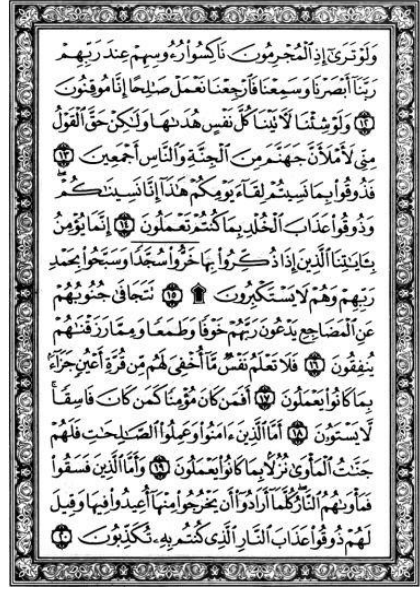 وَلَوْ تَرَىٰٓ إِذِ ٱلْمُجْرِمُونَ نَاكِسُوا۟ رُءُوسِهِمْ عِندَ رَبِّهِمْ
رَبَّنَآ أَبْصَرْنَا وَسَمِعْنَا فَٱرْجِعْنَا نَعْمَلْ صَـٰلِحًا إِنَّا مُوقِنُونَ
١٢ وَلَوْ شِئْنَا لَـَٔاتَيْنَا كُلَّ نَفْسٍ هُدَىٰهَا وَلَـٰكِنْ حَقَّ ٱلْقَوْلُ
مِنِّى لَأَمْلَأَنَّ جَهَنَّمَ مِنَ ٱلْجِنَّةِ وَٱلنَّاسِ أَجْمَعِينَ ١٣
فَذُوقُوا۟ بِمَا نَسِيتُمْ لِقَآءَ يَوْمِكُمْ هَـٰذَآ إِنَّا نَسِينَـٰكُمْ ۖ
وَذُوقُوا۟ عَذَابَ ٱلْخُلْدِ بِمَا كُنتُمْ تَعْمَلُونَ ١٤ إِنَّمَا يُؤْمِنُ
بِـَٔايَـٰتِنَا ٱلَّذِينَ إِذَا ذُكِّرُوا۟ بِهَا خَرُّوا۟ سُجَّدًا وَسَبَّحُوا۟ بِحَمْدِ
رَبِّهِمْ وَهُمْ لَا يَسْتَكْبِرُونَ ۩ ١٥ تَتَجَافَىٰ جُنُوبُهُمْ
عَنِ ٱلْمَضَاجِعِ يَدْعُونَ رَبَّهُمْ خَوْفًا وَطَمَعًا وَمِمَّا رَزَقْنَـٰهُمْ
يُنفِقُونَ ١٦ فَلَا تَعْلَمُ نَفْسٌ مَّآ أُخْفِىَ لَهُم مِّن قُرَّةِ أَعْيُنٍ جَزَآءًۢ
بِمَا كَانُوا۟ يَعْمَلُونَ ١٧ أَفَمَن كَانَ مُؤْمِنًا كَمَن كَانَ فَاسِقًا ۚ
لَّا يَسْتَوُۥنَ ١٨ أَمَّا ٱلَّذِينَ ءَامَنُوا۟ وَعَمِلُوا۟ ٱلصَّـٰلِحَـٰتِ فَلَهُمْ
جَنَّـٰتُ ٱلْمَأْوَىٰ نُزُلًۢا بِمَا كَانُوا۟ يَعْمَلُونَ ١٩ وَأَمَّا ٱلَّذِينَ فَسَقُوا۟
فَمَأْوَىٰهُمُ ٱلنَّارُ ۖ كُلَّمَآ أَرَادُوٓا۟ أَن يَخْرُجُوا۟ مِنْهَآ أُعِيدُوا۟ فِيهَا وَقِيلَ
لَهُمْ ذُوقُوا۟ عَذَابَ ٱلنَّارِ ٱلَّذِى كُنتُم بِهِۦ تُكَذِّبُونَ ٢٠